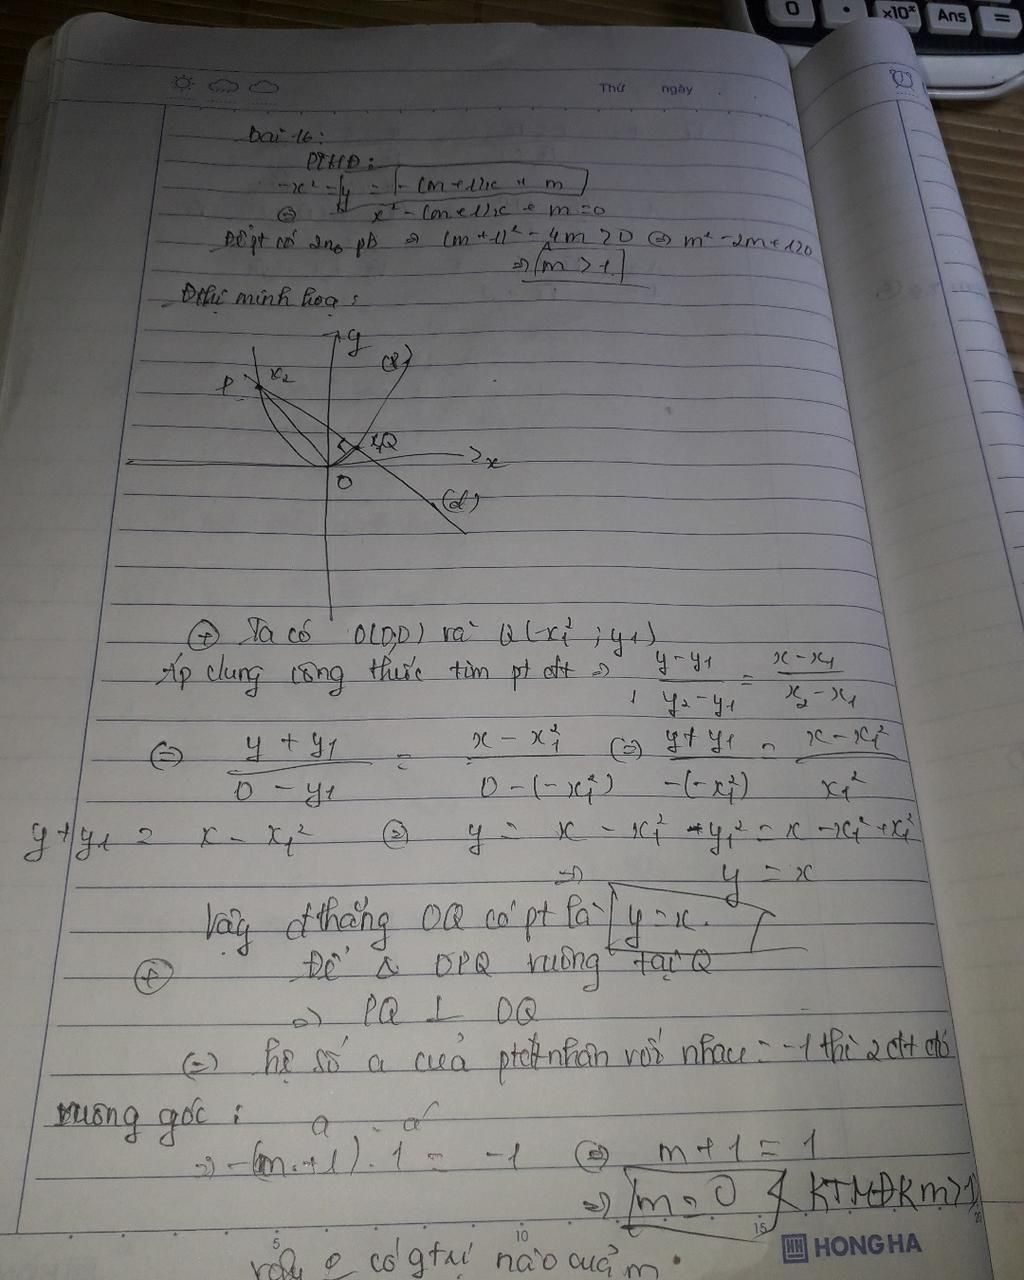 0 . ×10ˣ Ans =
Thứ ngày
Bài 16:
PTHĐ:
-x² = y = -(m+1)x + m
⇔ x² - (m+1)x + m = 0
Để pt có 2no pb ⇒ (m+1)² - 4m > 0 ⇔ m² - 2m + 1 > 0
⇒ m > 1
Đthị minh hoạ :
y
P x₂
Q
x
O
(d)
+ Ta có O(0,0) và Q(-x₁² ; y₁)
Áp dung công thức tìm pt đtt ⇒ (y-y₁)/(y₂-y₁) = (x-x₁)/(x₂-x₁)
⇔ (y+y₁)/(0-y₁) = (x-x₁²)/(0-(-x₁²)) ⇔ (y+y₁)/(-(-x₁²)) = (x-x₁²)/x₁²
y+y₁ = x - x₁² ⇔ y = x - x₁² + y₁² = x - x₁² + x₁²
⇒ y = x
Vậy đthẳng OQ có pt là y = x.
+ Để Δ OPQ vuông tại Q
⇒ PQ ⊥ OQ
⇔ hệ số a của ptđt nhân với nhau = -1 thì 2 đtt đó
vuông góc :
a . a'
⇒ -(m+1).1 = -1 ⇔ m+1 = 1
⇒ m = 0 < KTMĐK m>1
5 10 15 20
HONG HA
vậy có gtrị nào của m.